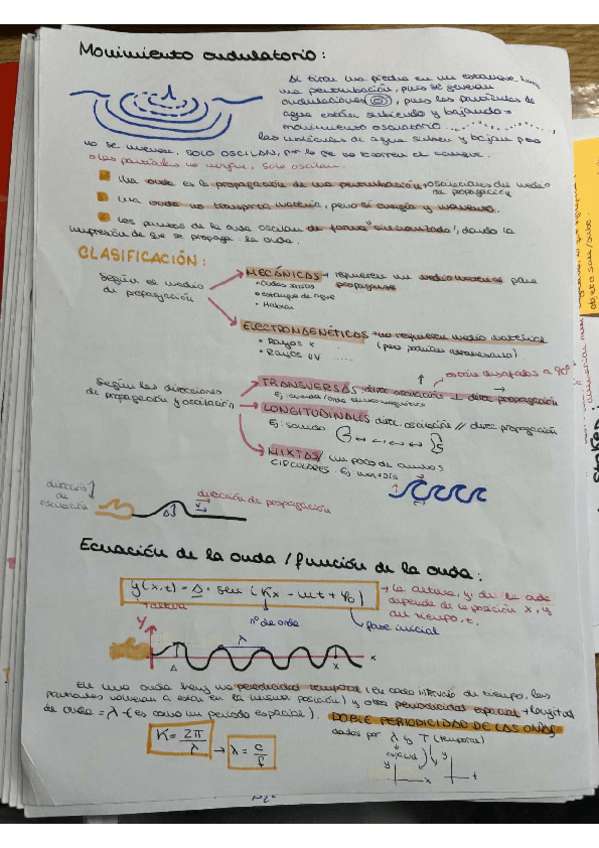 Movimiento ondulatorio:
Si tiras una piedra en un estanque, hay
una perturbación, pues se generan
ondulaciones, pues las partículas de
agua están subiendo y bajando =
movimiento oscilatorio
las moléculas de agua suben y bajan pero
no se mueven, SOLO OSCILAN, por lo que no
las partículas no viajan, solo oscilan.
Una onda es la propagación de una perturbación + oscilaciones del medio
de propagación
Una onda no transporta materia, pero sí energía y momento.
Los puntos de la onda oscilan de forma "sincronizada", dando la
impresión de que se propaga la onda.
CLASIFICACIÓN:
Según el medio
de propagación
MECÁNICAS → requieren un medio material para
propagarse
• Ondas
• estanque de agua
• Hablar
ELECTROMAGNÉTICAS → no requieren medio material
• Rayos X
• Rayos UV ....
(pero podrían atravesarlo)
están desfasados a 90º
Según las direcciones
de propagación y oscilación
TRANSVERSAS direc. oscilación ⊥ direc. propagación
Ej: cuerda/onda electromagnética
LONGITUDINALES direc. oscilación // direc. propagación
Ej: sonido
MIXTAS/ un poco de ambas
CIRCULARES. Ej:
dirección
de
oscilación
dirección de propagación
v
Δ
Ecuación de la onda / función de la onda:
y(x,t) = Δ · sen (Kx - wt + φ0)
→ La altura, y, de la onda
depende de la posición x, y
del tiempo, t.
nº de onda
fase inicial
y
λ
Δ
x
x
En una onda hay una periodicidad temporal (en cada intervalo de tiempo, las
partículas vuelven a estar en la misma posición) y otra periodicidad espacial → longitud
de onda = λ (es como un periodo espacial). DOBLE PERIODICIDAD DE LAS ONDAS
dadas por λ y T (temporal)
K = 2π/λ → λ = c/f
espacial
y
x
y
t